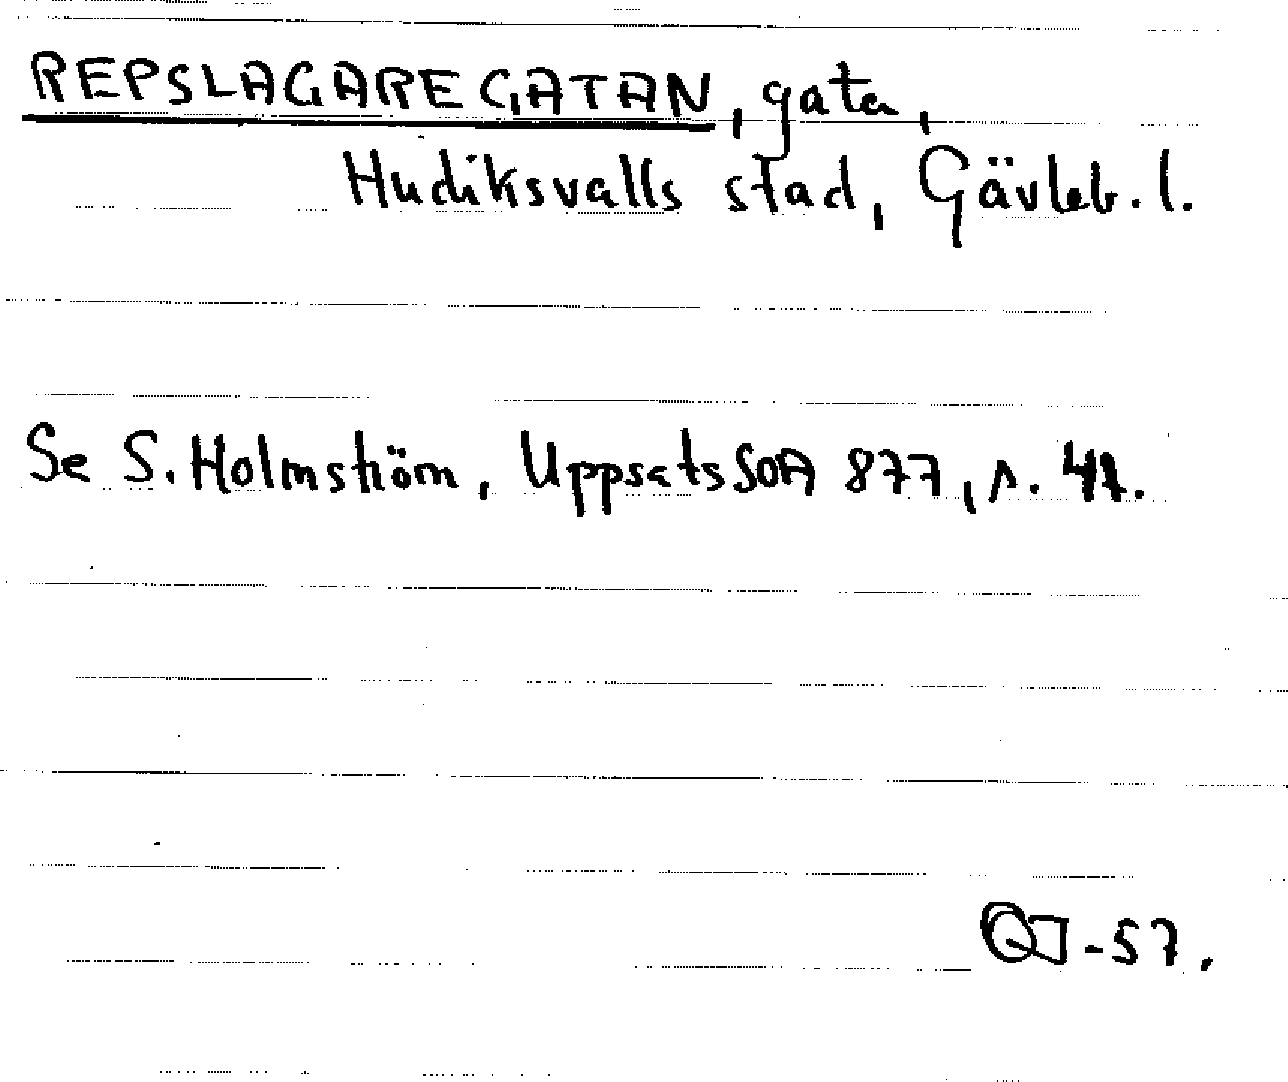 REPSLAGAREGATAN, gata,
Hudiksvalls stad, Gävleb. l.
Se S. Holmström, Uppsats SOA 877, s. 41.
-57.